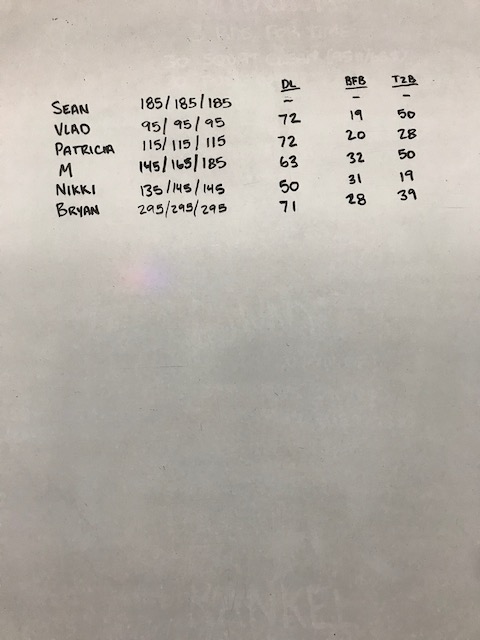 DL BFB T2B
SEAN 185/185/185 – – –
VLAD 95/95/95 72 19 50
PATRICIA 115/115/115 72 20 28
M 145/165/185 63 32 50
NIKKI 135/145/145 50 31 19
BRYAN 295/295/295 71 28 39